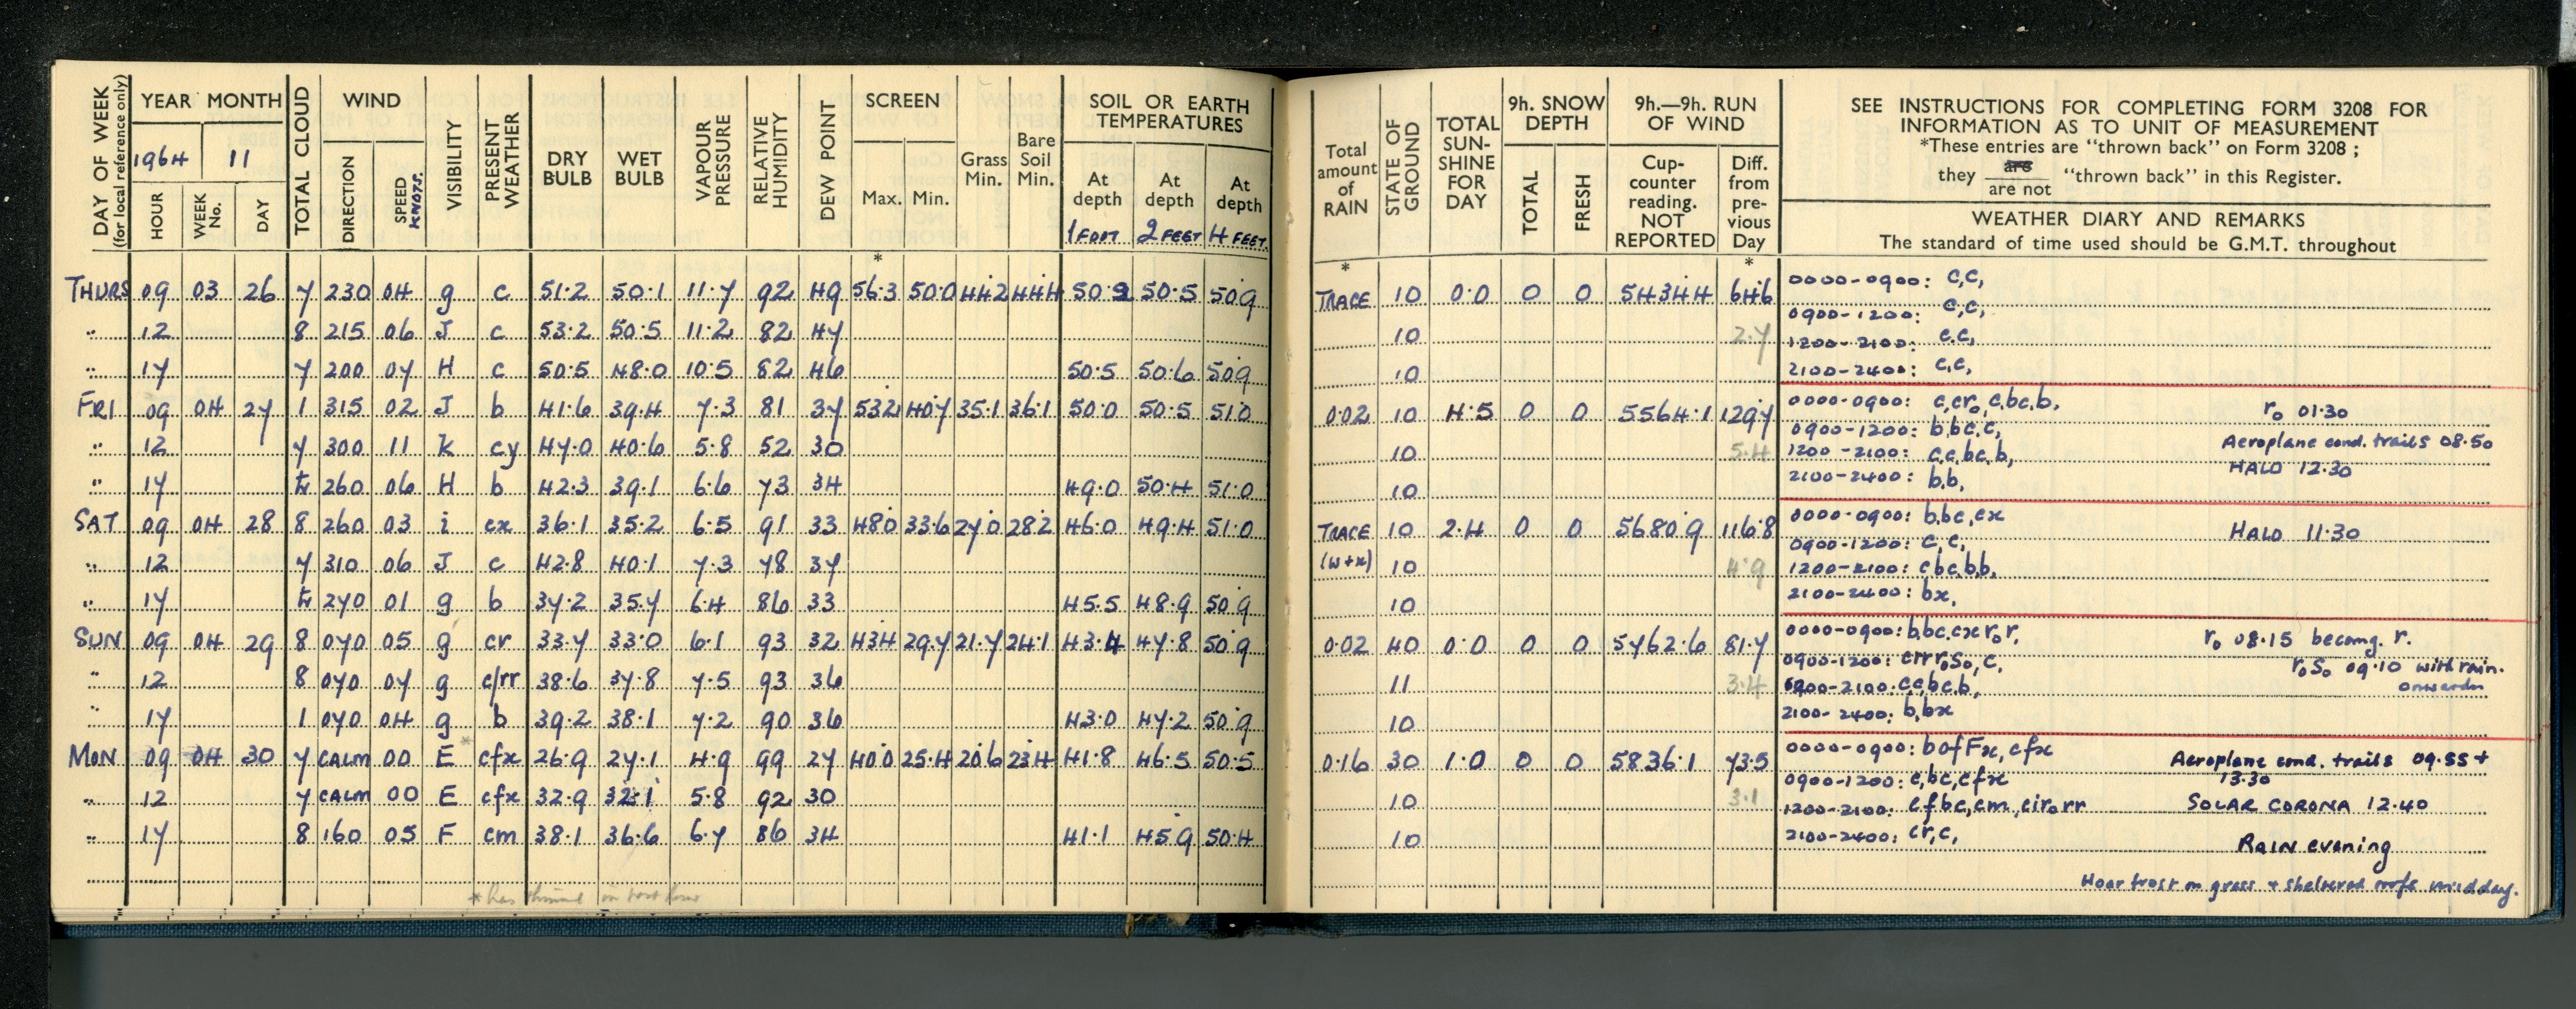 DAY OF WEEK (for local reference only) YEAR MONTH TOTAL CLOUD WIND VISIBILITY PRESENT WEATHER DRY BULB WET BULB VAPOUR PRESSURE RELATIVE HUMIDITY DEW POINT SCREEN Grass Min. Bare Soil Min. SOIL OR EARTH TEMPERATURES
1964 11
HOUR WEEK No. DAY DIRECTION SPEED KNOTS. Max. Min. At depth At depth At depth
1 FOOT 2 FEET 4 FEET.
*
THURS 09 03 26 7 230 04 g c 51.2 50.1 11.7 92 49 56.3 50.0 44.2 44.4 50.9 50.5 50.9
" 12 8 215 06 J c 53.2 50.5 11.2 82 47
" 17 7 200 07 H c 50.5 48.0 10.5 82 46 50.5 50.6 50.9
FRI 09 04 27 1 315 02 J b 41.6 39.4 7.3 81 37 53.2 40.7 35.1 36.1 50.0 50.5 51.0
" 12 7 300 11 K cy 47.0 40.6 5.8 52 30
" 17 260 06 H b 42.3 39.1 6.6 73 34 49.0 50.4 51.0
SAT 09 04 28 8 260 03 i cx 36.1 35.2 6.5 91 33 48.0 33.6 27.0 28.2 46.0 49.4 51.0
" 12 7 310 06 J c 42.8 40.1 7.3 78 37
" 17 270 01 g b 37.2 35.7 6.4 86 33 45.5 48.9 50.9
SUN 09 04 29 8 070 05 g cr 33.7 33.0 6.1 93 32 43.4 29.7 21.7 24.1 43.4 47.8 50.9
" 12 8 070 07 g c/rr 38.6 37.8 7.5 93 36
" 17 1 070 04 g b 39.2 38.1 7.2 90 36 43.0 47.2 50.9
MON 09 04 30 7 CALM 00 E* cfx 26.9 27.1 4.9 99 27 40.0 25.4 20.6 23.4 41.8 46.5 50.5
" 12 7 CALM 00 E cfx 32.9 32.1 5.8 92 30
" 17 8 160 05 F cm 38.1 36.6 6.7 86 34 41.1 45.9 50.4
Total amount of RAIN STATE OF GROUND TOTAL SUN-SHINE FOR DAY 9h. SNOW DEPTH TOTAL FRESH 9h.—9h. RUN OF WIND Cup-counter reading. NOT REPORTED Diff. from pre-vious Day
SEE INSTRUCTIONS FOR COMPLETING FORM 3208 FOR
INFORMATION AS TO UNIT OF MEASUREMENT
*These entries are "thrown back" on Form 3208 ;
they are / are not "thrown back" in this Register.
WEATHER DIARY AND REMARKS
The standard of time used should be G.M.T. throughout
* *
TRACE 10 0.0 0 0 5434.4 64.6 0000-0900: c,c,
0900-1200: c,c,
10 2.7 1200-2100: c.c,
10 2100-2400: c,c,
0.02 10 4.5 0 0 5564.1 129.7 0000-0900: c,cr₀,c,bc,b, r₀ 01.30
0900-1200: b,bc,c, Aeroplane cond. trails 08.50
10 5.4 1200-2100: c,c,bc,b, HALO 12.30
10 2100-2400: b,b,
TRACE 10 2.4 0 0 5680.9 116.8 0000-0900: b,bc,cx HALO 11.30
0900-1200: c,c,
(w+x) 10 4.9 1200-2100: c bc,b,b,
10 2100-2400: bx,
0.02 40 0.0 0 0 5762.6 81.7 0000-0900: b,bc,cx r₀ r, r₀ 08.15 becomg. r.
0900-1200: crr r₀s₀, c, r₀s₀ 09.10 with rain.
11 3.4 -2100: c,c,bc,b, onwards
10 2100-2400: b,bx
0.16 30 1.0 0 0 5836.1 73.5 0000-0900: b of Fx, cfx Aeroplane cond. trails 09.55 +
0900-1200: c,bc,cfx 13.30
10 3.1 1200-2100: cfbc,cm,cir₀rr SOLAR CORONA 12.40
10 2100-2400: cr,c, RAIN evening
Hoar frost on grass + sheltered roofs midday.